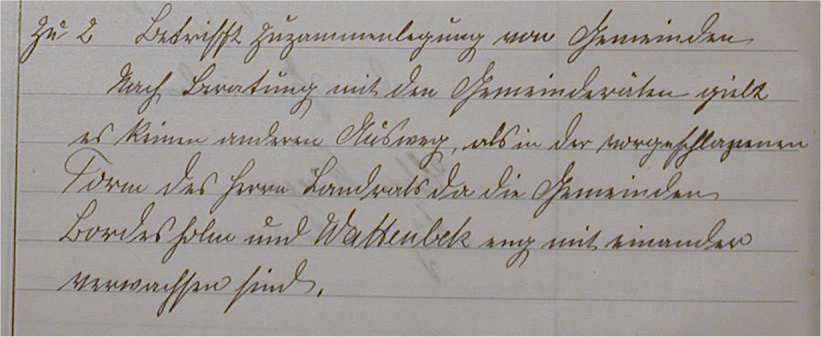 Zu 2 Betrifft Zuzammenlegung von Gemeinden
Nach Beratung mit den Gemeinderäten giebt
es keinen anderen Ausweg, als in der vorgeschlagenen
Form des Herrn Landrats da die Gemeinden
Bordesholm und Wattenbek eng mit einander
verwachsen sind.